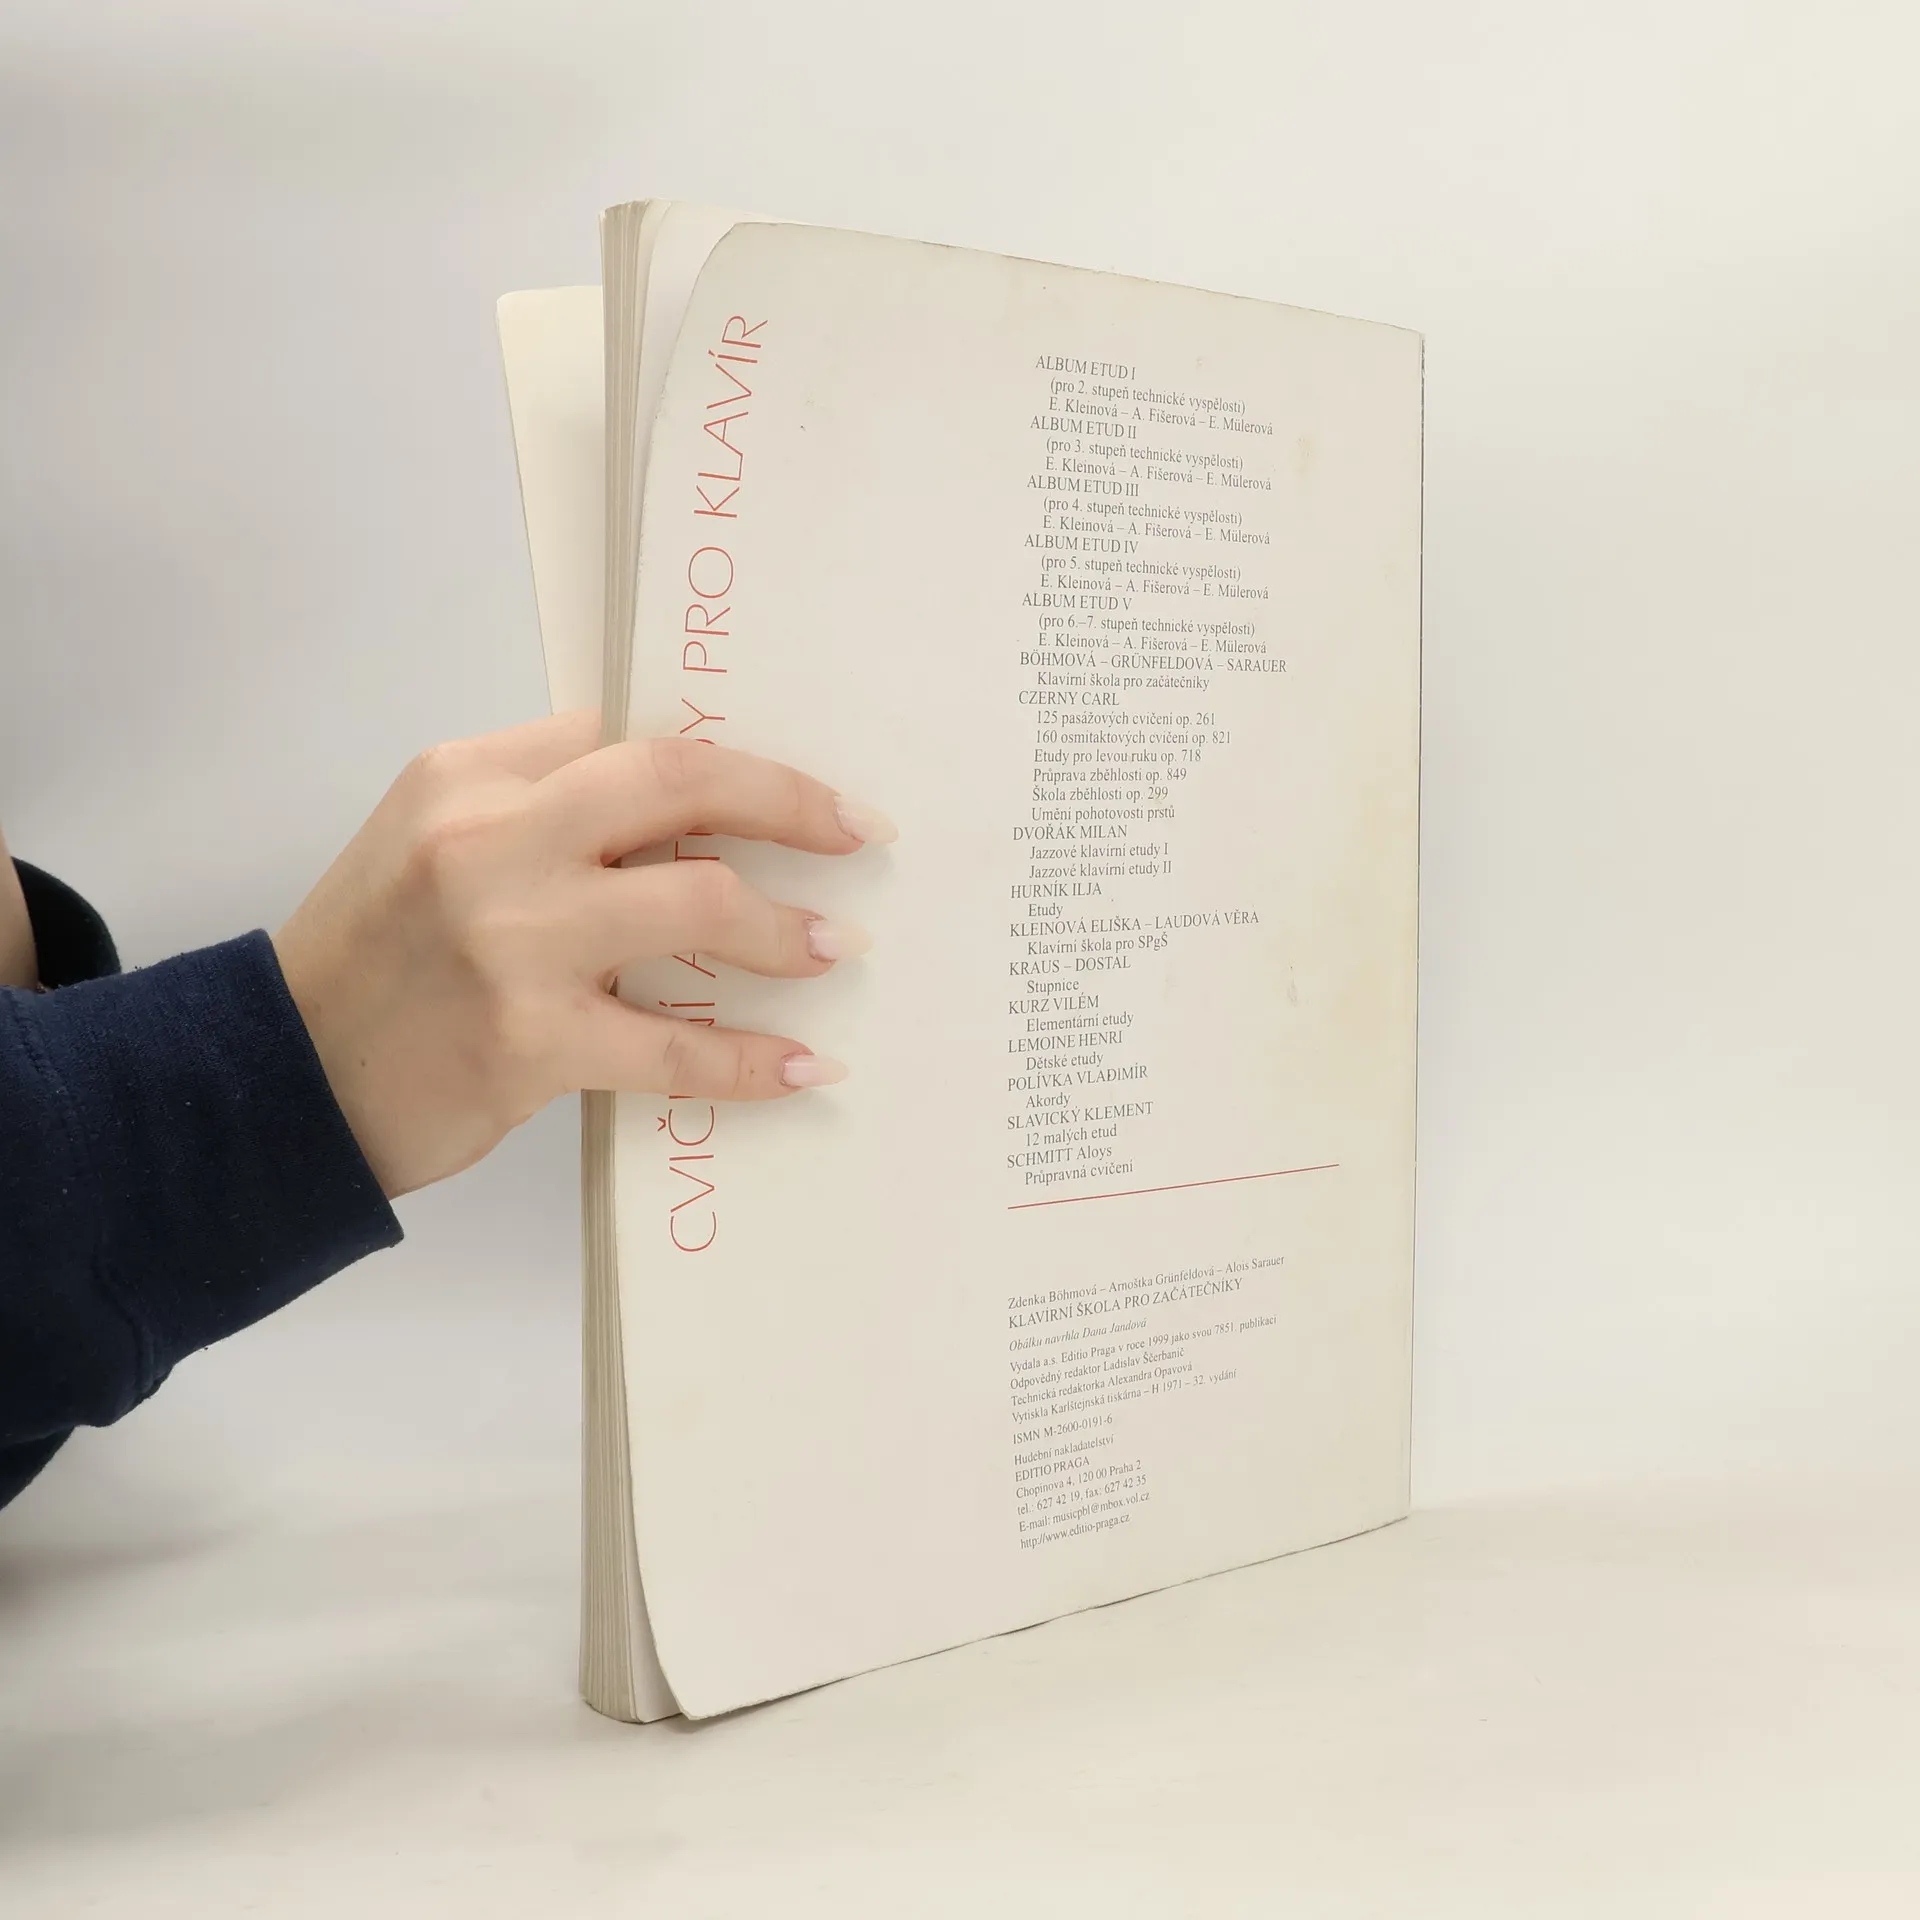 CVIČENÍ A ETUDY PRO KLAVÍR
ALBUM ETUD I
(pro 2. stupeň technické vyspělosti)
E. Kleinová – A. Fišerová – E. Mülerová
ALBUM ETUD II
(pro 3. stupeň technické vyspělosti)
E. Kleinová – A. Fišerová – E. Mülerová
ALBUM ETUD III
(pro 4. stupeň technické vyspělosti)
E. Kleinová – A. Fišerová – E. Mülerová
ALBUM ETUD IV
(pro 5. stupeň technické vyspělosti)
E. Kleinová – A. Fišerová – E. Mülerová
ALBUM ETUD V
(pro 6.–7. stupeň technické vyspělosti)
E. Kleinová – A. Fišerová – E. Mülerová
BÖHMOVÁ – GRÜNFELDOVÁ – SARAUER
Klavírní škola pro začátečníky
CZERNY CARL
125 pasážových cvičení op. 261
160 osmitaktových cvičení op. 821
Etudy pro levou ruku op. 718
Průprava zběhlosti op. 849
Škola zběhlosti op. 299
Umění pohotovosti prstů
DVOŘÁK MILAN
Jazzové klavírní etudy I
Jazzové klavírní etudy II
HURNÍK ILJA
Etudy
KLEINOVÁ ELIŠKA – LAUDOVÁ VĚRA
Klavírní škola pro SPgŠ
KRAUS – DOSTAL
Stupnice
KURZ VILÉM
Elementární etudy
LEMOINE HENRI
Dětské etudy
POLÍVKA VLADIMÍR
Akordy
SLAVICKÝ KLEMENT
12 malých etud
SCHMITT Aloys
Průpravná cvičení
Zdenka Böhmová – Arnoštka Grünfeldová – Alois Sarauer
KLAVÍRNÍ ŠKOLA PRO ZAČÁTEČNÍKY
Obálku navrhla Dana Jandová
Vydala a.s. Editio Praga v roce 1999 jako svou 7851. publikaci
Odpovědný redaktor Ladislav Ščerbanič
Technická redaktorka Alexandra Opavová
Vytiskla Karlštejnská tiskárna – H 1971 – 32. vydání
ISMN M-2600-0191-6
Hudební nakladatelství
EDITIO PRAGA
Chopinova 4, 120 00 Praha 2
tel.: 627 42 19, fax: 627 42 35
E-mail: musicpbl@mbox.vol.cz
http://www.editio-praga.cz